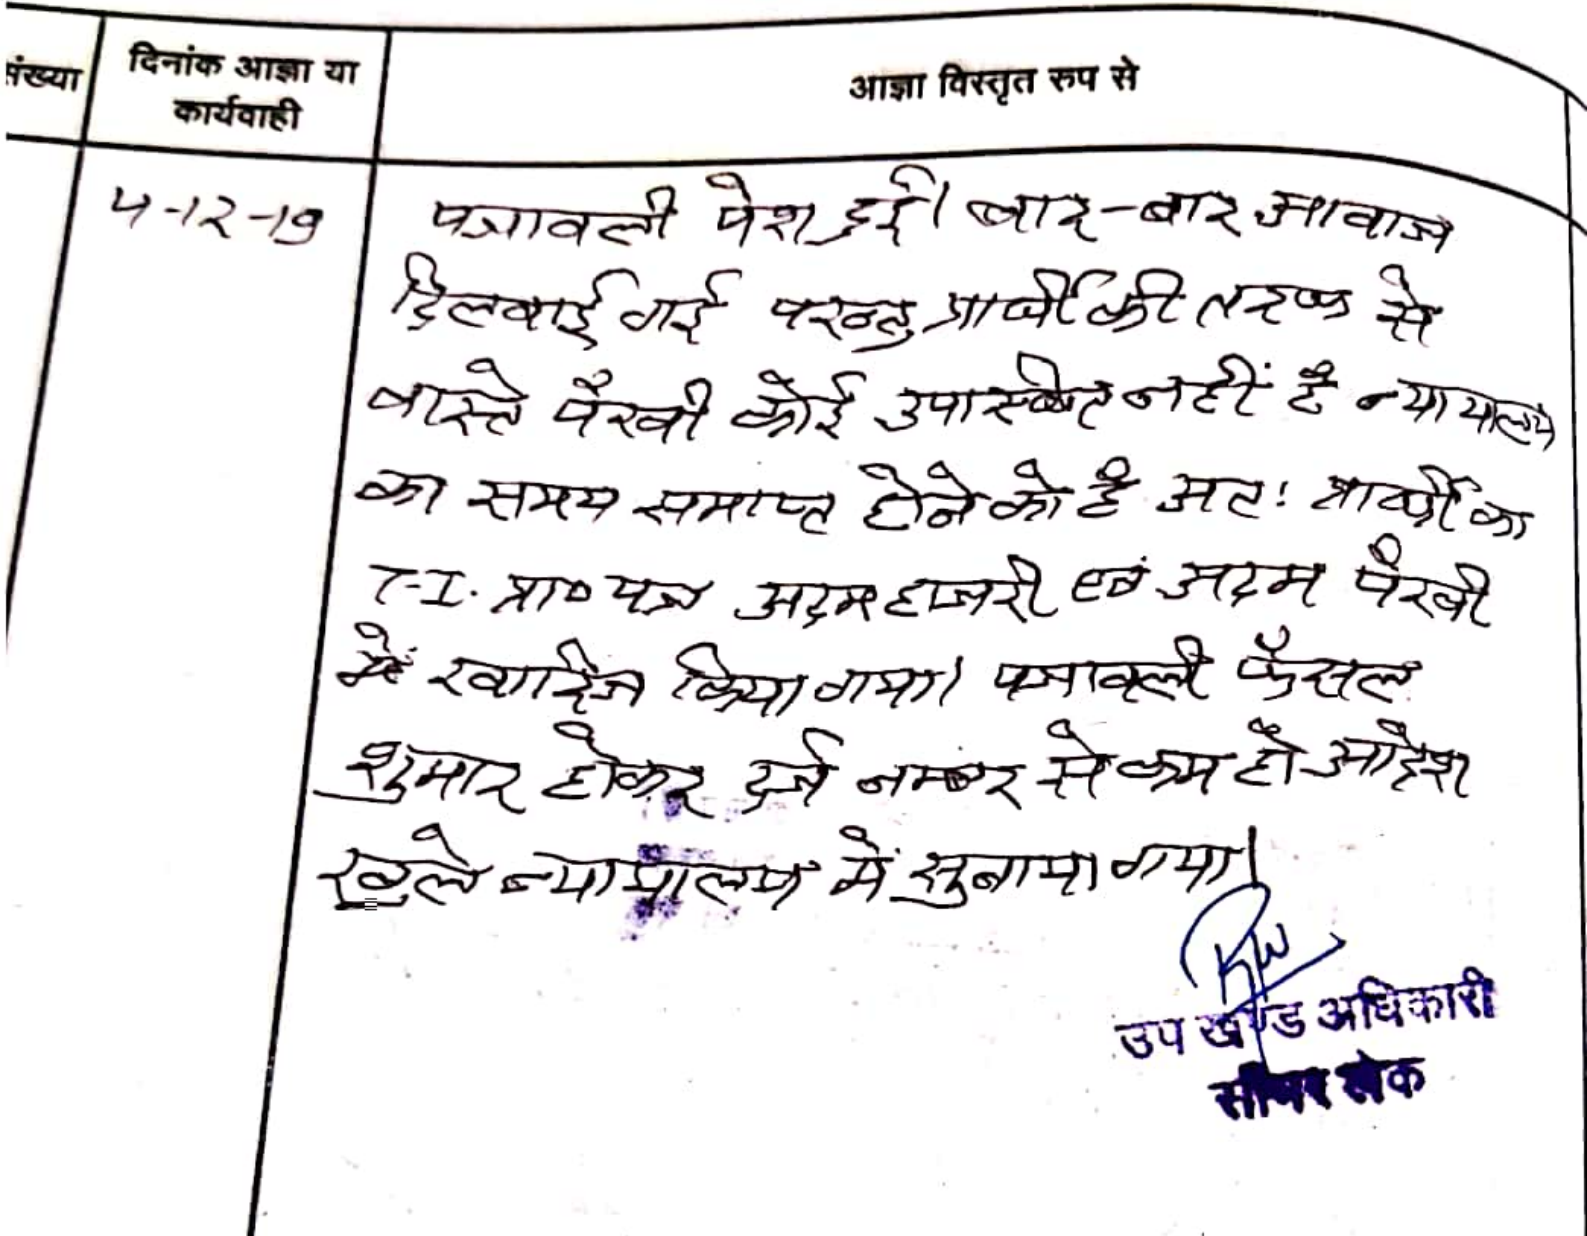 संख्या
दिनांक आज्ञा या
कार्यवाही
आज्ञा विस्तृत रुप से
4-12-19
पत्रावली पेश हुई। बार-बार आवाज
दिलवाई गई परन्तु प्रार्थी की तरफ से
वास्ते पैरवी कोई उपस्थित नहीं है न्यायालय
का समय समाप्त होने को है अत: प्रार्थी का
T.I. प्रा० पत्र अदम हाजरी एवं अदम पैरवी
में खारिज किया गया। पत्रावली फैसल
शुमार होकर दर्ज नम्बर से कम हो आदेश
खुले न्यायालय में सुनाया गया।
उप खण्ड अधिकारी
सांभर लेक